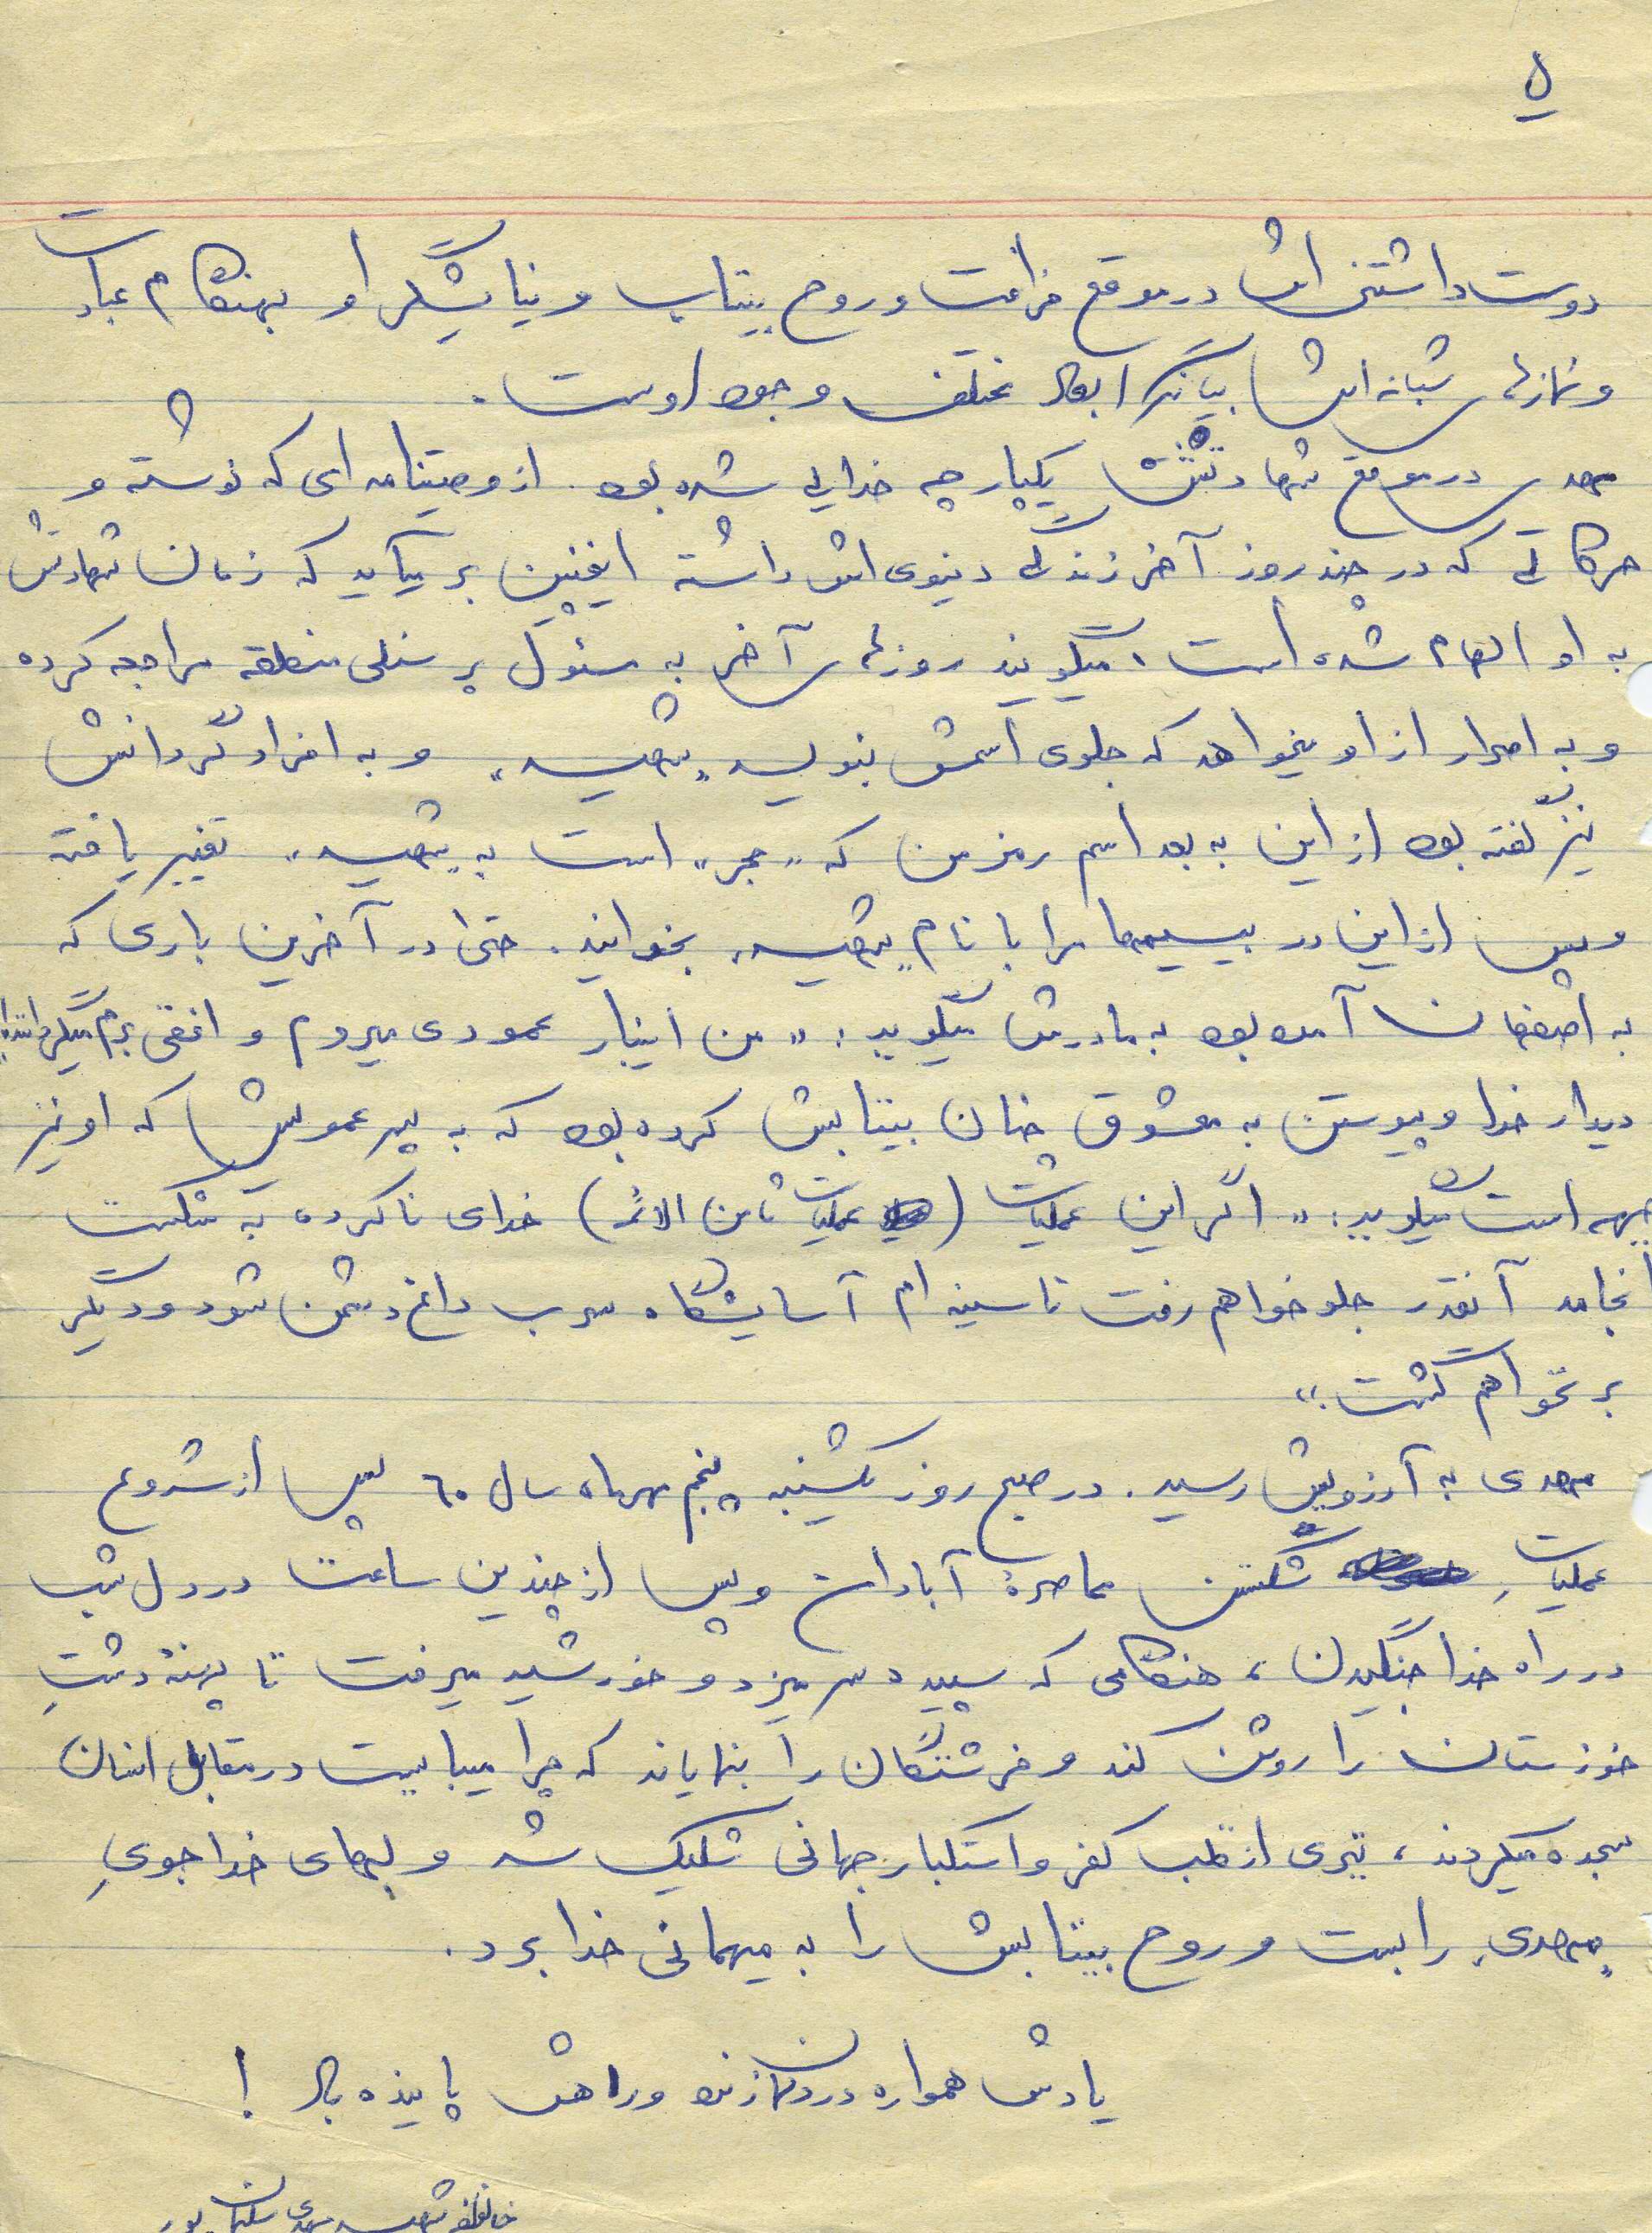 ۵
دوست داشتنی اش در موقع فراغت و روح بیتاب و نیایشگر او بهنگام عبادت
و نمازهای شبانه اش بیانگر ابعاد مختلف وجود اوست.
مهدی در موقع شهادتش یکپارچه خدایی شده بود. از وصیتنامه ای که نوشته و
حرکاتی که در چند روز آخر زندگی دنیوی اش داشته اینچنین بر میآید که زمان شهادتش
به او الهام شده است، میگویند روزهای آخر به مسئول پرسنلی منطقه مراجعه کرده
و به اصرار از او میخواهد که جلوی اسمش بنویسد "شهید" و به افراد گردانش
نیز گفته بود از این به بعد اسم رمز من که "حجر" است به "شهید" تغییر یافته
و پس از این در بیسیمها مرا با نام "شهید" بخوانید. حتی در آخرین باری که
به اصفهان آمده بود به مادرش میگوید: "من اینبار عمودی میروم و افقی برم میگردانند"
دیدار خدا و پیوستن به معشوق چنان بیتابش کرده بود که به پسر عمویش که او نیز
جبهه است میگوید: "اگر این عملیات (عملیات ثامن الائمه) خدای ناکرده به شکست
انجامد آنقدر جلو خواهم رفت تا سینه ام آسایشگاه سرب داغ دشمن شود و دیگر
بر نخواهم گشت."
مهدی به آرزویش رسید. در صبح روز یکشنبه پنجم مهرماه سال ۶۰ پس از شروع
عملیاتِ شکستن محاصرهٔ آبادان و پس از چندین ساعت در دل شب
در راه خدا جنگیدن، هنگامی که سپیده سر میزد و خورشید میرفت تا پهنهٔ دشتِ
خوزستان را روشن کند و فرشتگان را بنمایاند که چرا میبایست در مقابل انسان
سجده میکردند، تیری از قلب کفر و استکبار جهانی شلیک شد و لبهای خداجویِ
"مهدی" را بست و روح بیتابش را به میهمانی خدا برد.
یادش همواره در دلمان زنده و راهش پاینده باد !
خانواده شهید مهدی سلیمان پور